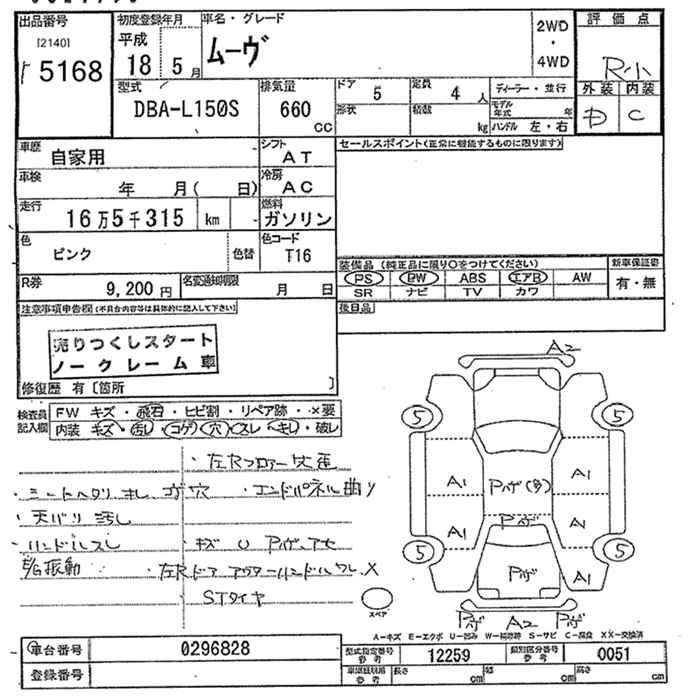 出品番号 初度登録年月 車名・グレード 2WD ・ 4WD 評価点
[2140] 平成 ムーヴ R小
5168 18 5月 外装 内装
型式 排気量 ドア 5 定員 4人 ディーラー・並行 D C
DBA-L150S 660 cc 形状 積載 kg モデル年式 年
ハンドル 左・右
車歴 自家用 シフト AT セールスポイント(正常に機能するものに限ります)
車検 年 月( 日) 冷房 AC
走行 16万5千315 km 燃料 ガソリン
色 ピンク 色替 色コード T16 装備品(純正品に限り○をつけてください) 新車保証書
R券 9,200円 名変通知期限 月 日 PS PW ABS エアB AW 有・無
SR ナビ TV カワ
注意事項申告欄(不具合内容等は具体的に記入して下さい) 後日品
売りつくしスタート
ノークレーム車
修復歴 有〔箇所 〕
検査員記入欄 FW キズ・飛石・ヒビ割・リペア跡・×要
内装 キズ・汚レ・コゲ・穴・スレ・キレ・破レ
・左Rフロアー
・シートヘタリ キレ コゲ穴 ・エンドパネル曲り
・天バリ汚レ
・ハンドルスレ ・キズ U Pハゲ
E/G振動 左Rドアアウターハンドルワレ X
STタイヤ
A2
5 5
A1 Pハゲ(多) A1
A1 Pハゲ A1
5 5
Pハゲ A1
スペア
Pハゲ A2 Pハゲ
A-キズ E-エクボ U-凹み W-補修跡 S-サビ C-腐食 XX-交換済
車台番号 0296828 型式指定番号 参考 12259 類別区分番号 参考 0051
登録番号 車単規格 参考 長さ cm 幅 cm 高さ cm